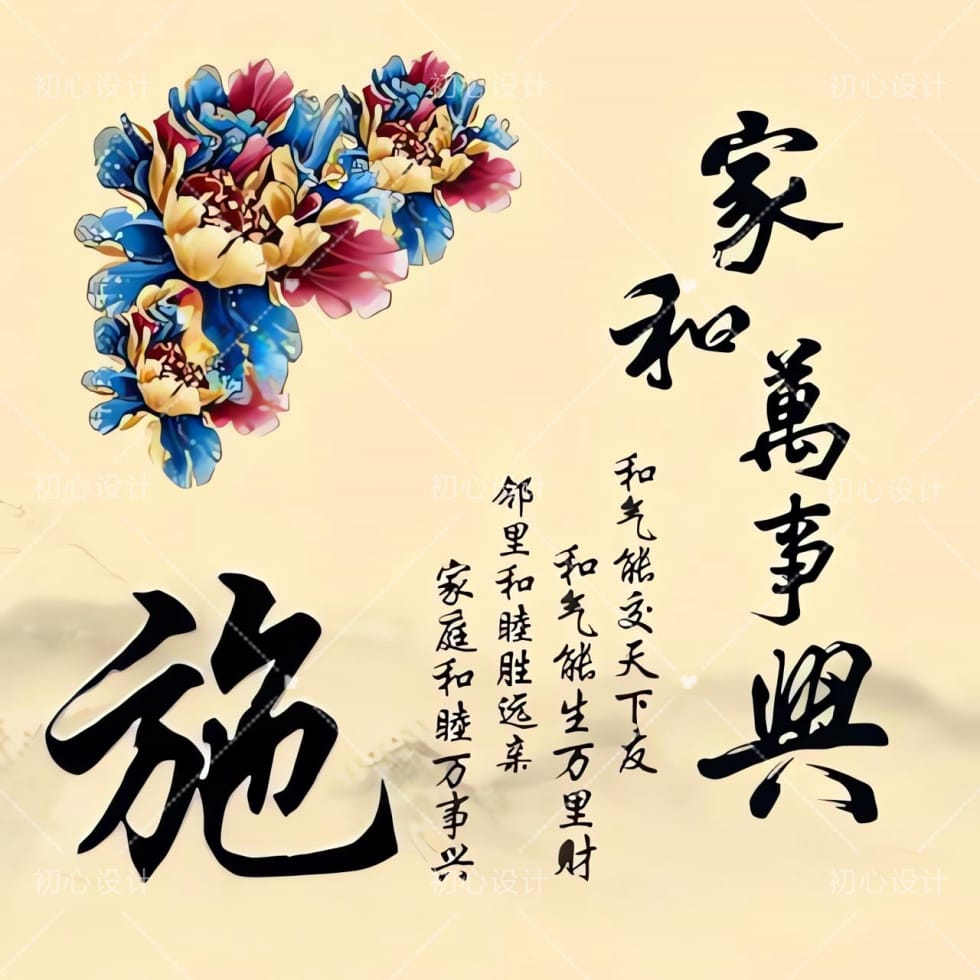 家和萬事興
和气能交天下友
和气能生万里财
邻里和睦胜远亲
家庭和睦万事兴
施
初心设计
初心设计
初心设计
初心设计
初心设计
初心设计
初心设计
初心设计
初心设计